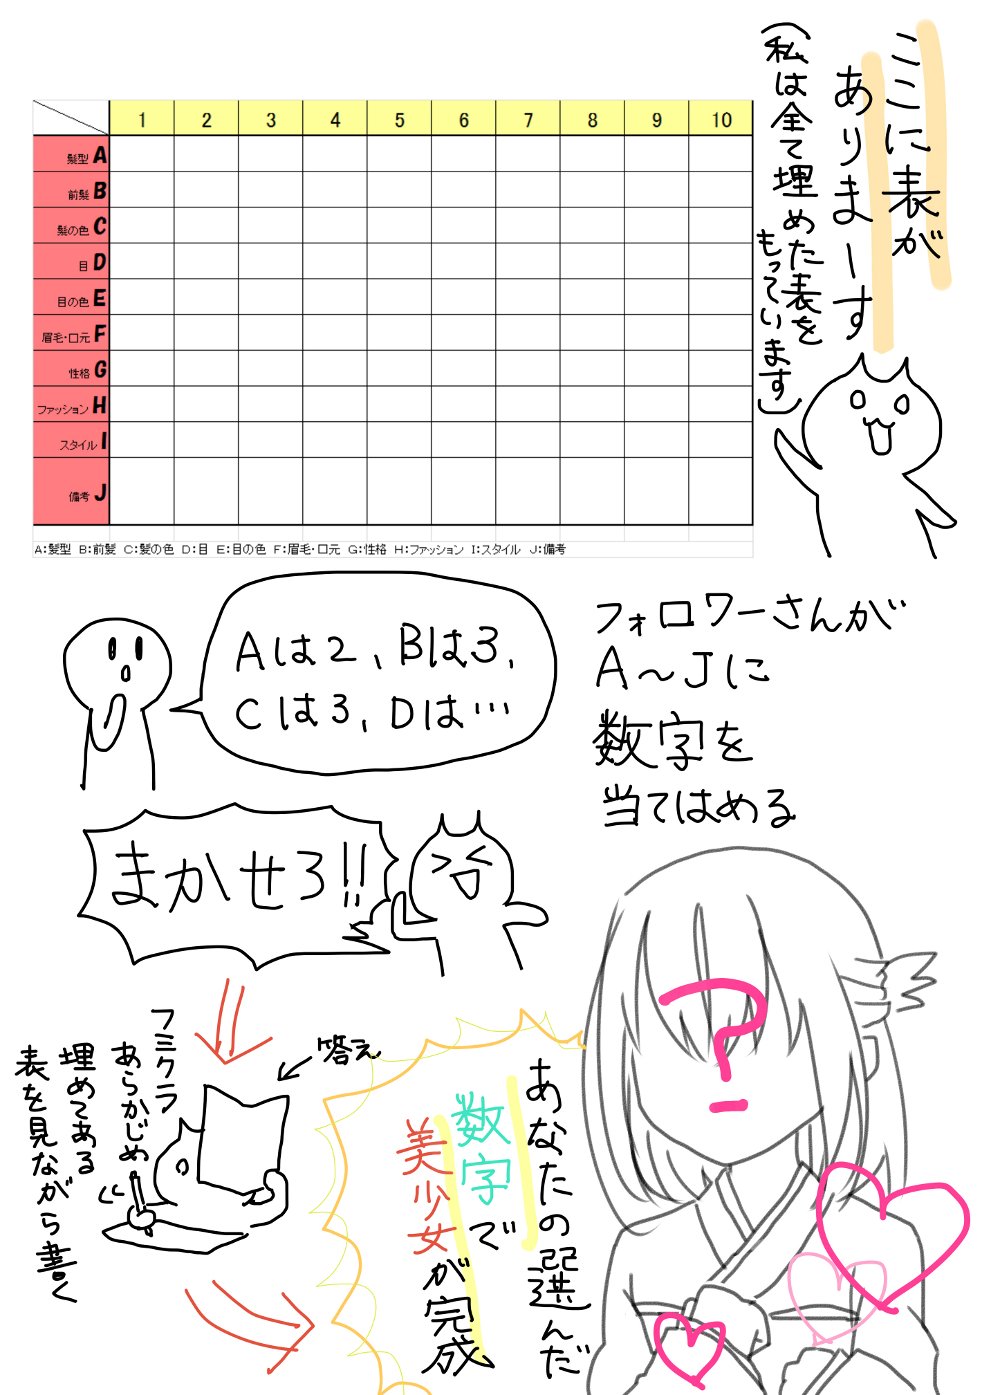 ここに表が
ありまーす
(私は全て埋めた表を
もっています)
1 2 3 4 5 6 7 8 9 10
髪型 A
前髪 B
髪の色 C
目 D
目の色 E
眉毛・口元 F
性格 G
ファッション H
スタイル I
備考 J
A:髪型 B:前髪 C:髪の色 D:目 E:目の色 F:眉毛・口元 G:性格 H:ファッション I:スタイル J:備考
Aは2、Bは3、
Cは3、Dは…
フォロワーさんが
A～Jに
数字を
当てはめる
まかせろ!!
答え
フミクラ
あらかじめ
埋めてある
表を見ながら書く
あなたの選んだ
数字で
美少女が完成
?